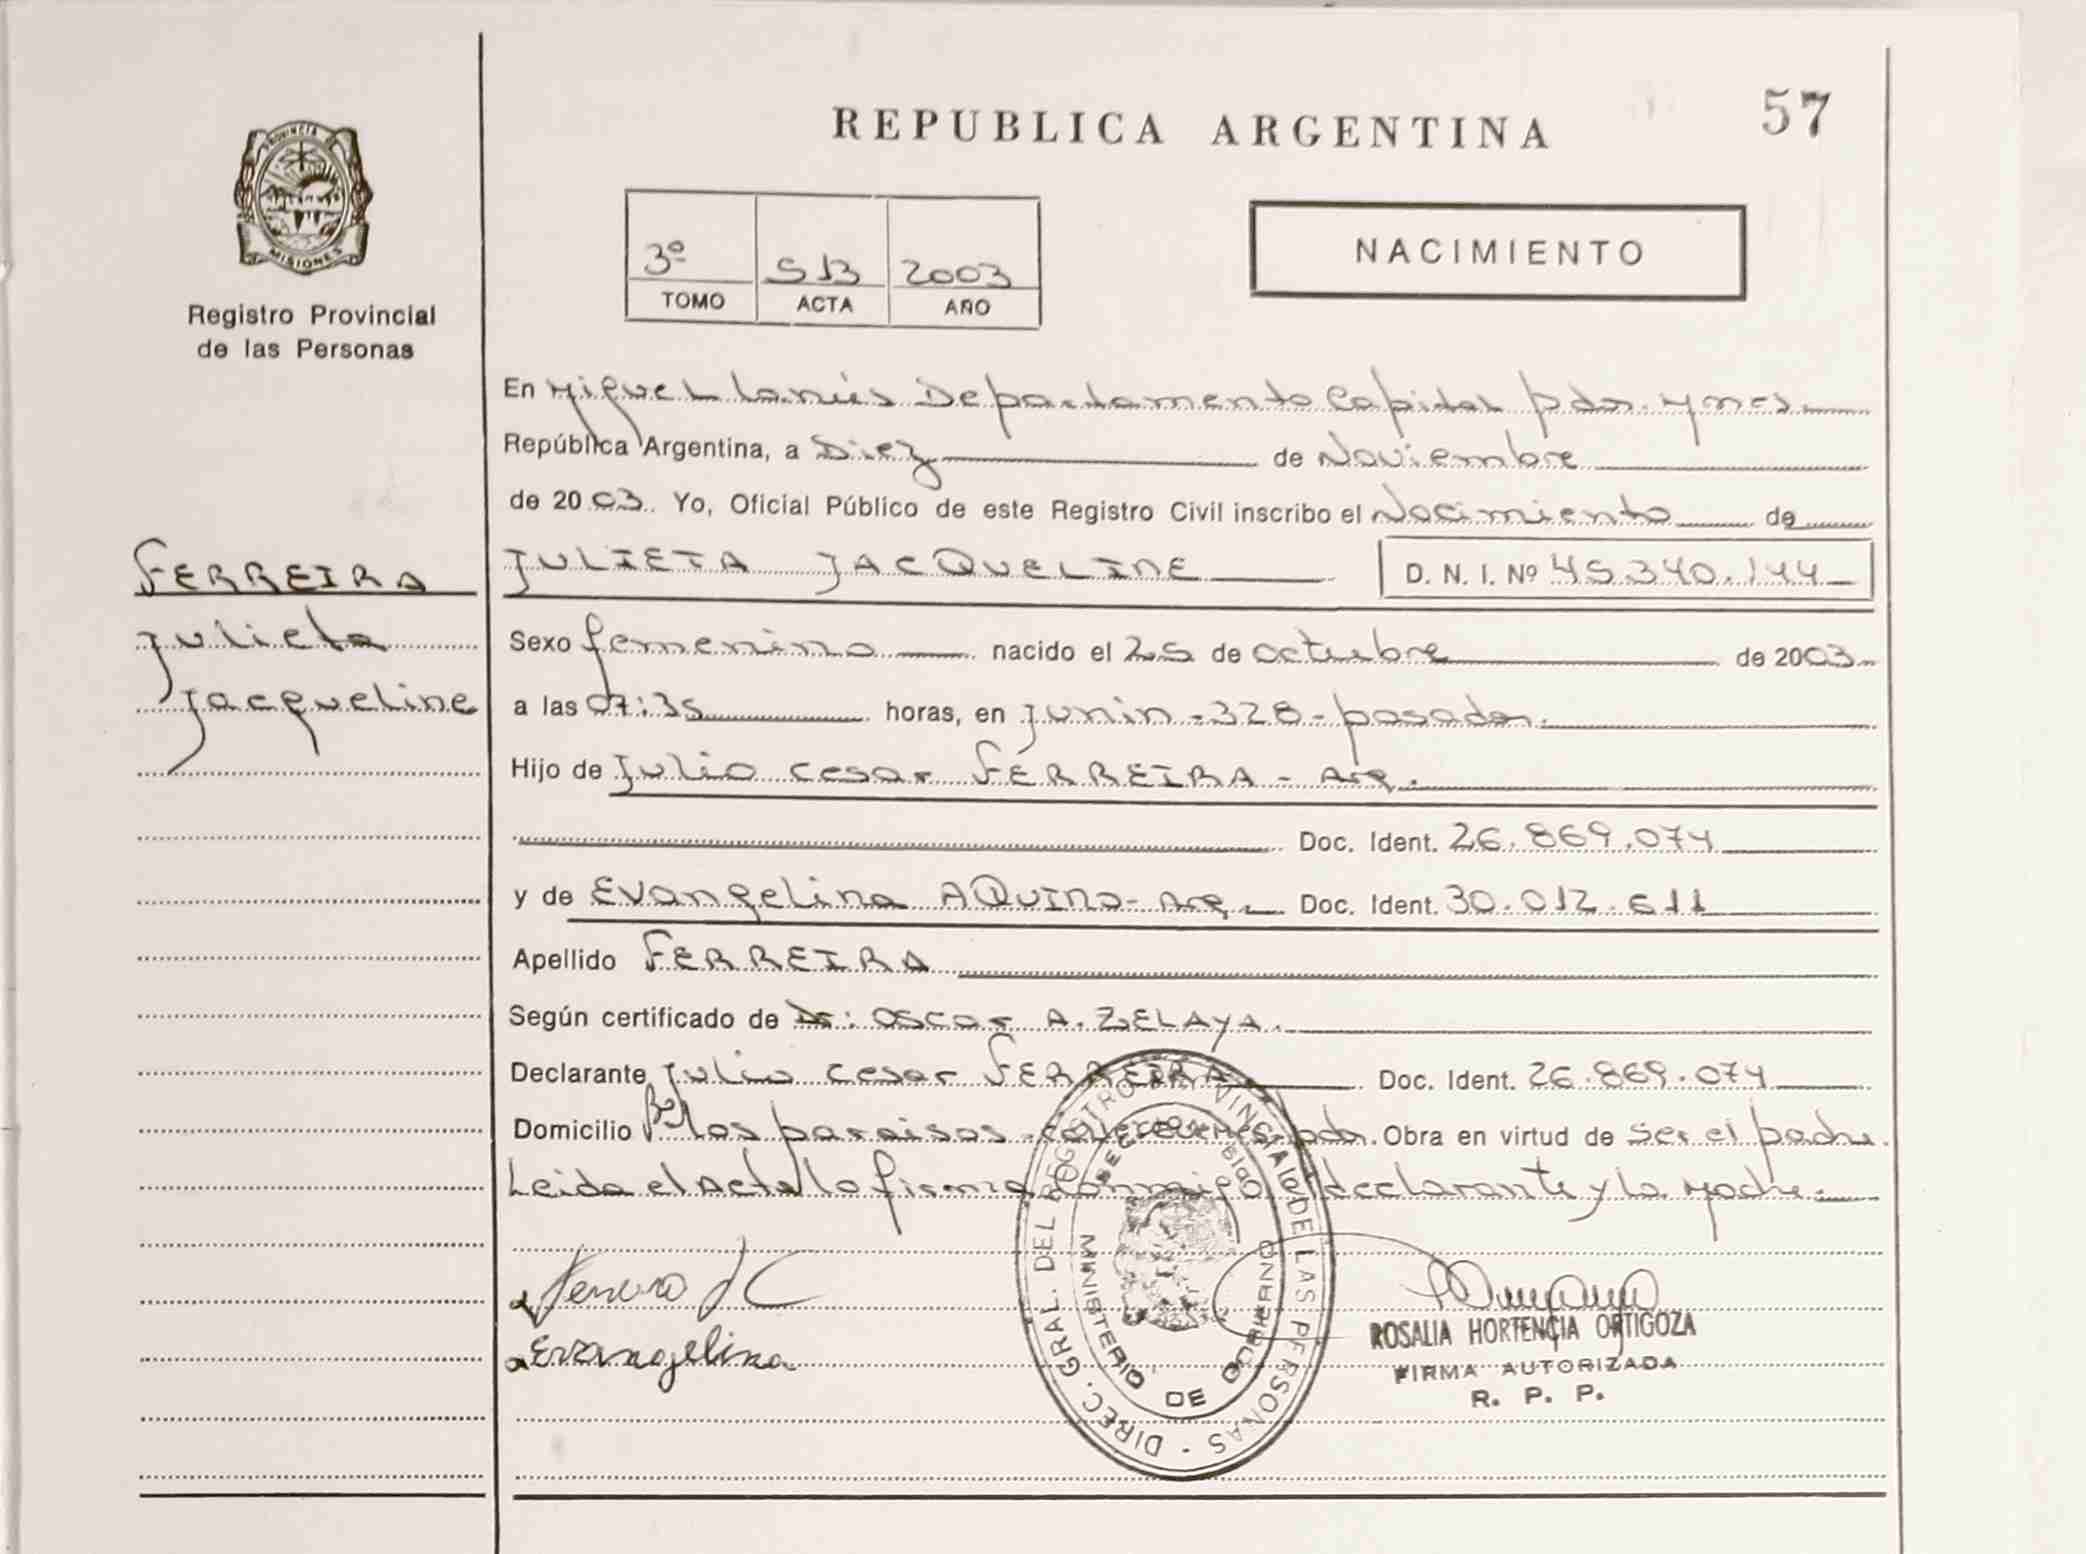 PROVINCIA
MISIONES
Registro Provincial
de las Personas
REPUBLICA ARGENTINA
57
3º S13 2003
TOMO ACTA AÑO
NACIMIENTO
En Miguel Lanús Departamento Capital pdas. Mnes.
República Argentina, a Diez de Noviembre
de 2003. Yo, Oficial Público de este Registro Civil inscribo el Nacimiento de
FERREIRA
Julieta
Jacqueline
JULIETA JACQUELINE D. N. I. Nº 45.340.144
Sexo femenino nacido el 25 de octubre de 2003
a las 07:35 horas, en Junin - 328 - posadas.
Hijo de Julio cesar FERREIRA - Arg.
Doc. Ident. 26.869.074
y de Evangelina AQUINO - Arg. Doc. Ident. 30.012.611
Apellido FERREIRA
Según certificado de Dr: Oscar A. ZELAYA.
Declarante Julio cesar FERREIRA Doc. Ident. 26.869.074
Domicilio Bº los paraisos pdas. Obra en virtud de ser el padre.
Leida el Acta la firma conmigo declarante y la Madre.
DIREC. GRAL. DEL REGISTRO PROVINCIAL DE LAS PERSONAS
MINISTERIO DE GOBIERNO
Evangelina
ROSALIA HORTENCIA ORTIGOZA
FIRMA AUTORIZADA
R. P. P.